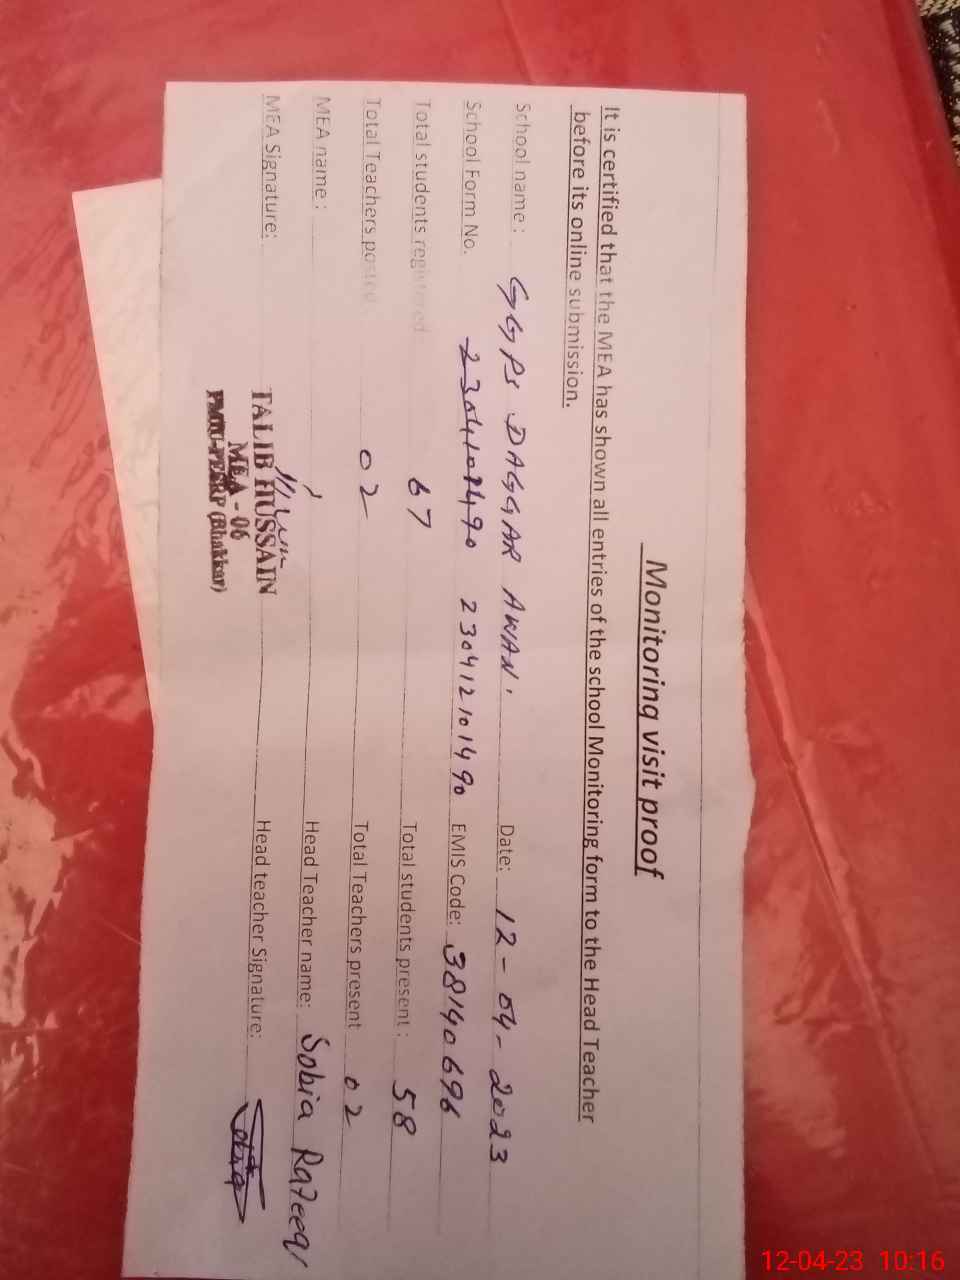 Monitoring visit proof
It is certified that the MEA has shown all entries of the school Monitoring form to the Head Teacher
before its online submission.
School name : GGPS DAGGAR AWAN. Date: 12-04-2023
School Form No. 23041201490 EMIS Code: 38140696
Total students registered 67 Total students present : 58
Total Teachers posted 02 Total Teachers present 02
MEA name : Head Teacher name: Sobia Rafeeq
MEA Signature: Head teacher Signature: Sobia
TALIB HUSSAIN
MEA - 06
PMIU-PESRP (Bhakkar)
12-04-23 10:16